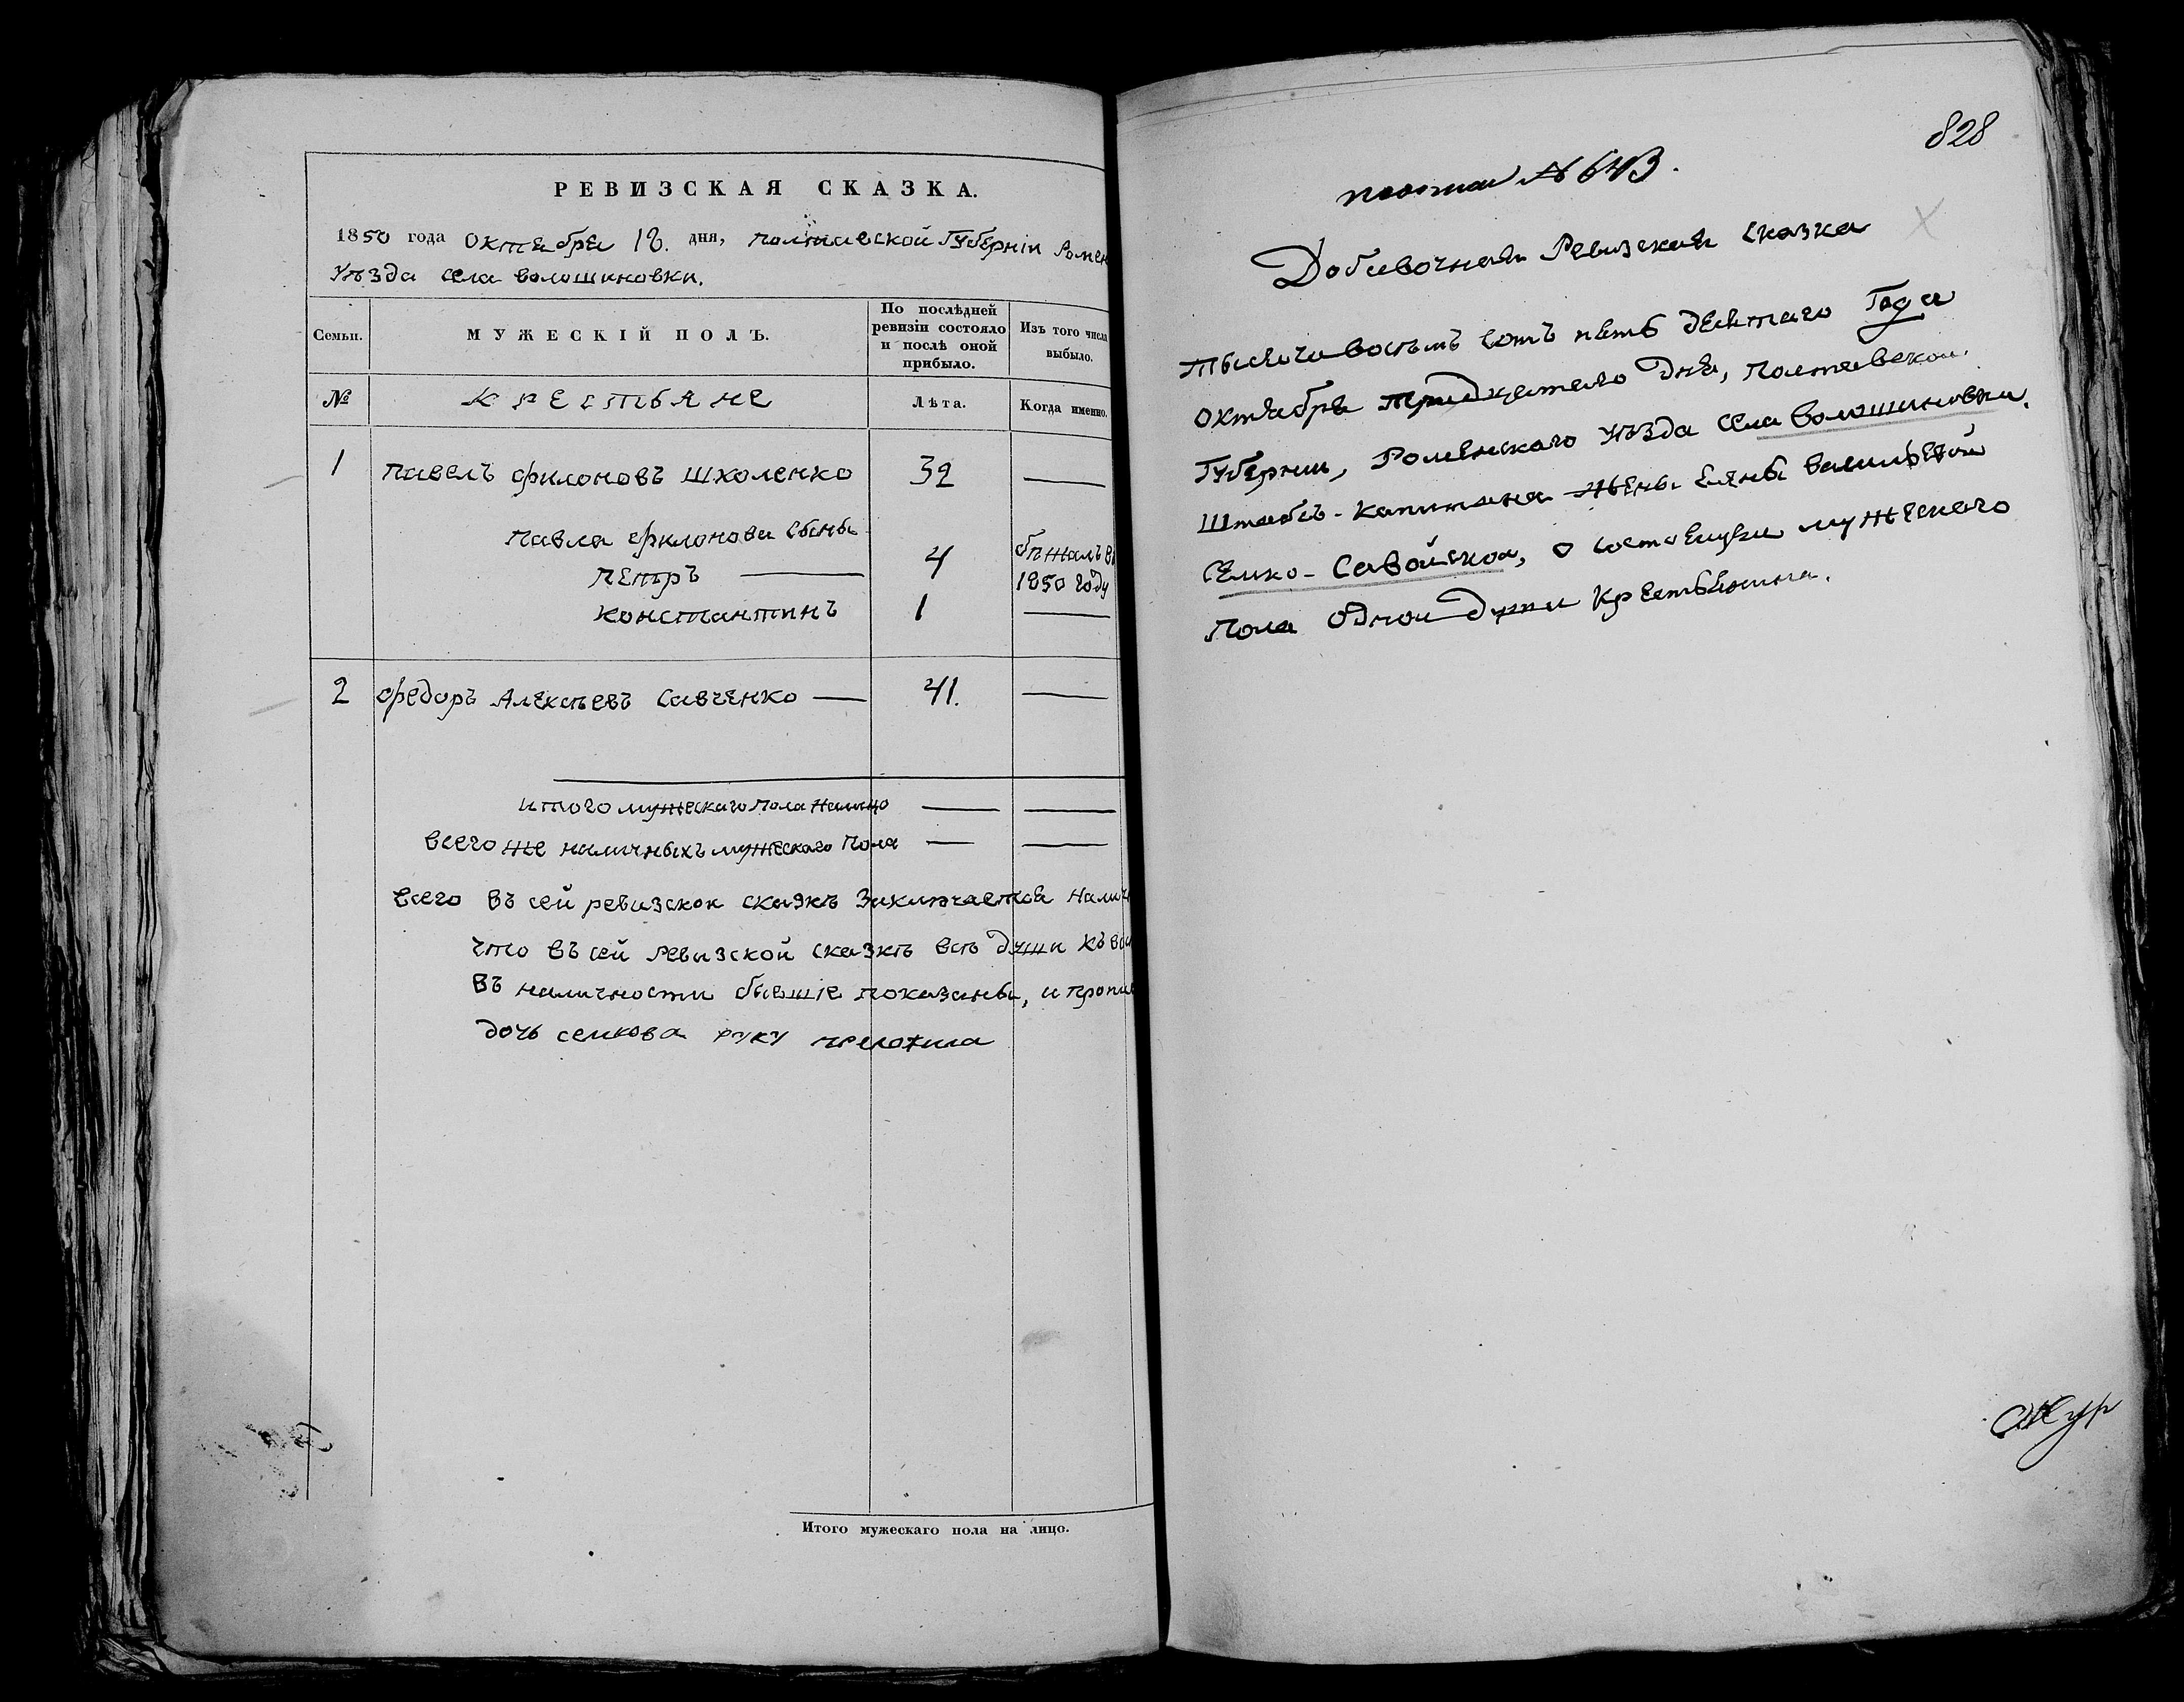 РЕВИЗСКАЯ СКАЗКА.
1850 года Октября 18. дня, Полтавской Губерніи Ромен
Уѣзда села Волошиновки.
Семьи.
МУЖЕСКІЙ ПОЛЪ.
По послѣдней ревизіи состояло и послѣ оной прибыло.
Изъ того числа выбыло.
№
Крестьяне
Лѣта.
Когда именно.
1 Павелъ Филоновъ Школенко 32 —
Павла Филонова сыны
Петръ — 4 бѣжалъ въ 1850 году
Константинъ 1 —
2 Федоръ Алексѣевъ Савченко — 41. —
Итого мужескаго пола налицо — —
Всего же наличныхъ мужескаго пола — —
Всего въ сей ревизской сказкѣ заключается налич
что въ сей ревизской сказкѣ всѣ души къ
въ наличности бывшіе показаны, и
дочь семкова руку приложила
Итого мужескаго пола на лицо.
828
№ 643.
Добавочная Ревизская сказка
Тысяча восемь сотъ пять десятаго Года
Октября тридцатаго дня, Полтавской
Губерніи, Роменскаго уѣзда села Волошиновки.
Штабсъ-Капитана жены Елены Васильевой
Семко-Савойской, о состоящей мужескаго
Пола одной души крестьянина.